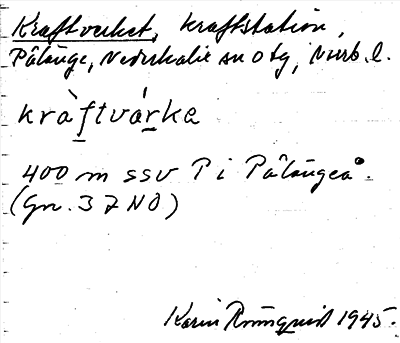 Kraftverket, kraftstation,
Pålänge, Nederkalix sn o tg, Norrb. l.
kràftvárke
400 m ssv P i Pålängeå.
(Gn. 37 NO)
Karin Rönnquist 1945.